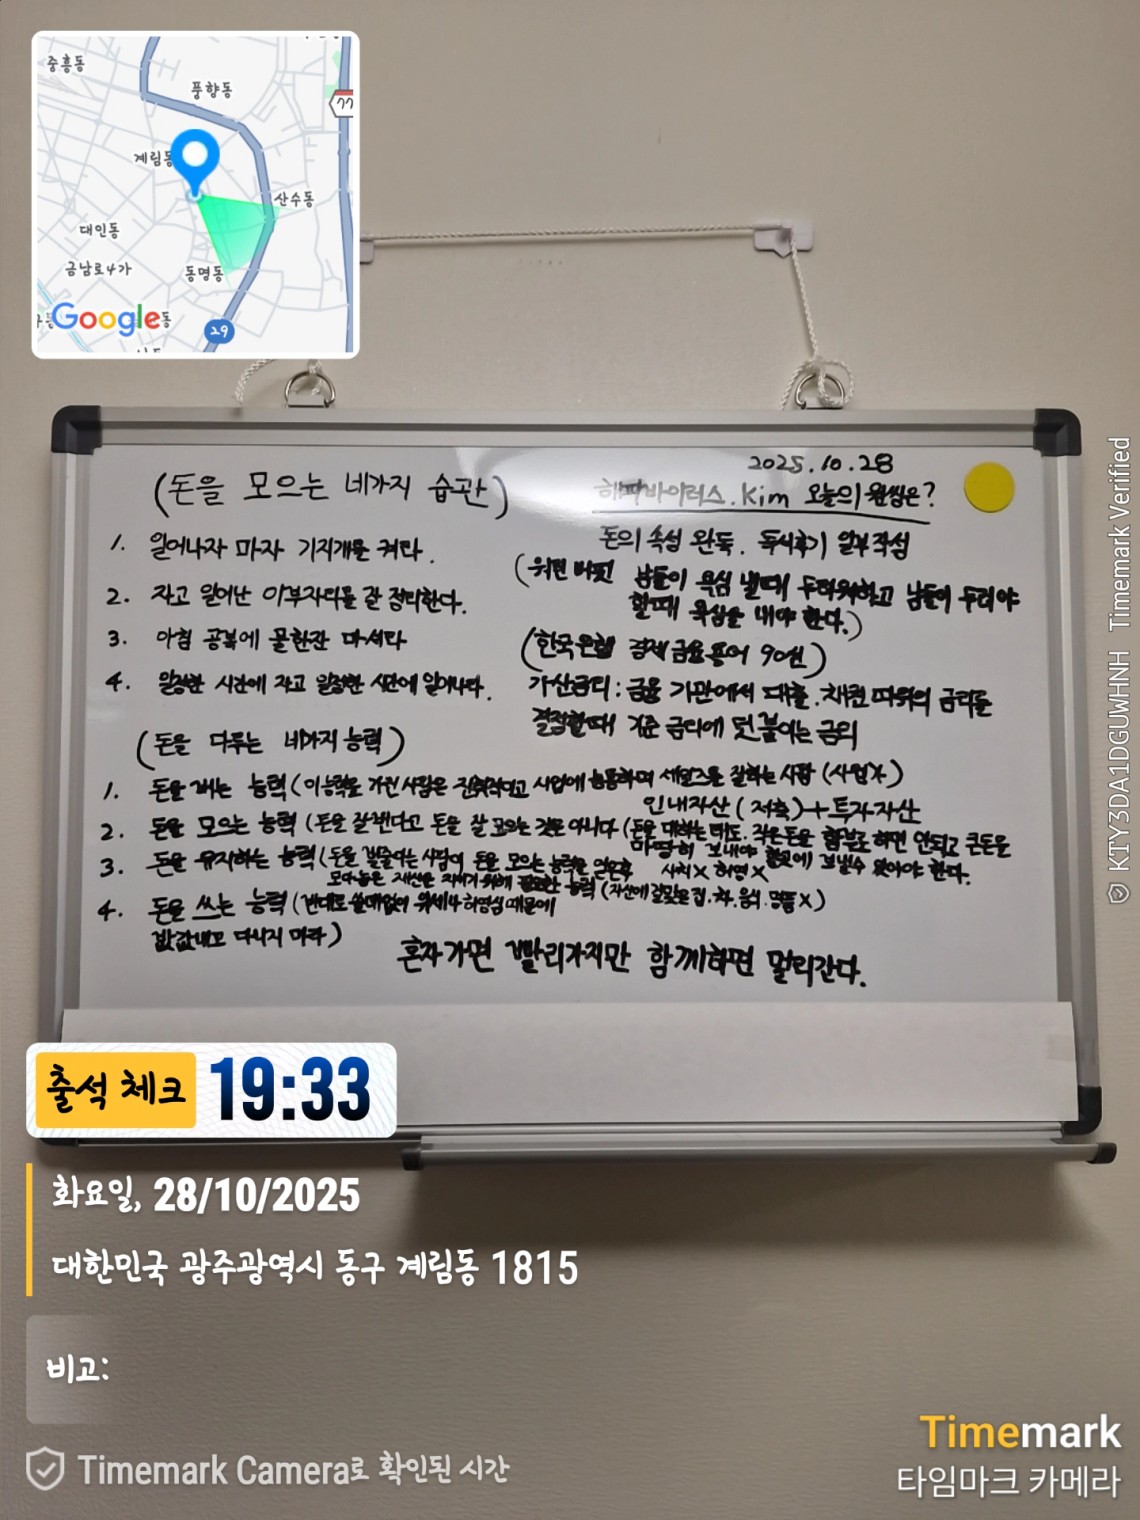 중흥동
풍향동
77
계림동
산수동
대인동
금남로4가
동명동
Google
29
2025.10.28
(돈을 모으는 네가지 습관)
해피바이러스.Kim 오늘의 원씽은?
1. 일어나자 마자 기지개를 켜라.
2. 자고 일어난 이부자리를 잘 정리한다.
3. 아침 공복에 물한잔 마셔라
4. 일정한 시간에 자고 일정한 시간에 일어나라.
돈의 속성 완독. 독서후기 일부작성
(워렌 버핏 남들이 욕심 낼때 두려워하고 남들이 두려야
할때 욕심을 내야 한다.)
(한국은행 경제금융용어 90선)
가산금리: 금융 기관에서 대출. 채권 따위의 금리를
결정할때 기준 금리에 덧붙이는 금리
(돈을 다루는 네가지 능력)
1. 돈을 버는 능력(이능력을 가진 사람은 진취적이고 사업에 능통하며 세일즈를 잘하는 사람 (사업가)
인내자산 (저축)+투자자산
2. 돈을 모으는 능력 (돈을 잘번다고 돈을 잘 모으는 것은 아니다 (돈을 대하는 태도. 작은돈을 함부로 하면 안되고 큰돈은
마땅히 보내야 할곳에 보낼수 있어야 한다.
3. 돈을 유지하는 능력(돈을 모으는 능력을 사치X 허영X
모아놓은 재산을 지키기 위해 필요한 능력 (자산에 걸맞을 집.차.음식.명품X)
4. 돈을 쓰는 능력 (반대로 쓸데없이 위세나 허영심 때문에
밥값내고 다니지 마라)
혼자가면 빨리가지만 함께하면 멀리간다.
출석 체크 19:33
화요일, 28/10/2025
대한민국 광주광역시 동구 계림동 1815
비고:
Timemark Camera로 확인된 시간
Timemark
타임마크 카메라
KTY3DA1DGUWHNH Timemark Verified